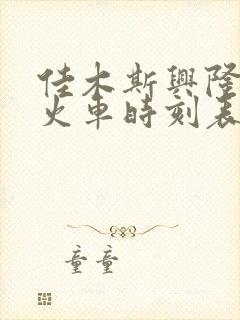 佳木斯興隆
火車時刻表
童童